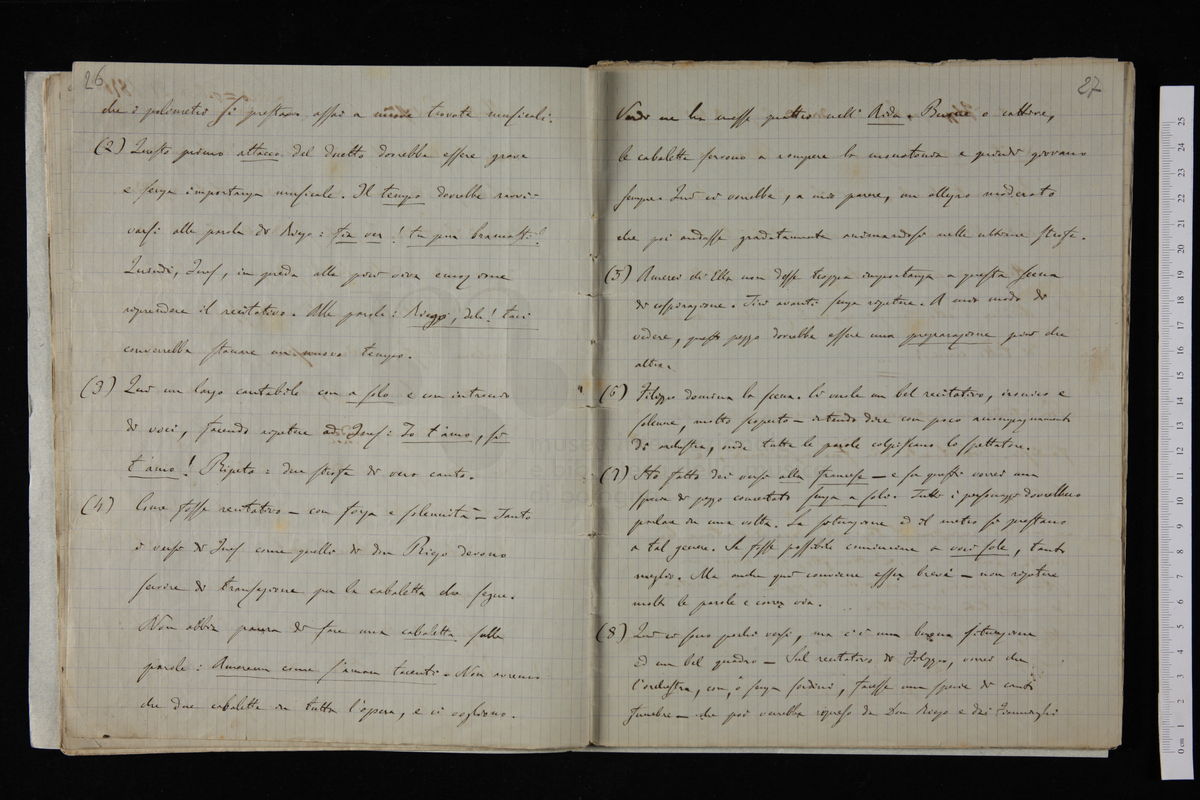 26
che i polimetri si prestano assai a nuove trovate musicali.
(2) Questo primo attacco del duetto dovrebbe essere grave
e senza importanza musicale. Il tempo dovrebbe ravvi-
varsi alle parole di Diego: fia ver! tu pur bramasti!
Quindi, Ines, in preda alla più viva emozione
riprendere il recitativo. Alle parole: Diego, deh! taci
converrebbe staccare un nuovo tempo.
(3) Qui un largo cantabile con a solo e con intreccio
di voci, facendo ripetere ad Ines: Io t'amo, sì
t'amo! Ripeto: due strofe di vero canto.
(4) Come fosse recitativo – con forza e solennità – Tanto
i versi di Ines come quelli di don Diego devono
servire di transizione per la cabaletta che segue.
Non abbia paura di fare una cabaletta sulle
parole: Ameremo come s'amam tacenti. Non avremo
che due cabalette in tutta l'opera, e ci vogliono.
27
Verdi ne ha messe quattro nell'Aida. Buone o cattive,
le cabalette servono a rompere la monotonia e quindi giovano
sempre. Qui ci vorrebbe, a mio parere, un allegro moderato
che poi andasse gradatamente animandosi nelle ultime strofe.
(5) Amerei che Ella non desse troppa importanza a questa scena
di cospirazione. Tiri avanti senza ripetere. A mio modo di
vedere, questo pezzo dovrebbe essere una preparazione più che
altro.
(6) Filippo domina la scena. Ci vuole un bel recitativo, ironico e
solenne, molto scoperto – intendo dire con poco accompagnamento
di orchestra, onde tutte le parole colpiscano lo spettatore.
(7) Ho fatto dei versi alla francese – e su questi vorrei una
specie di pezzo concertato senza a solo. Tutti i personaggi dovrebbero
parlare in una volta. La situazione ed il metro si prestano
a tal genere. Se fosse possibile cominciare a voci sole, tanto
meglio. Ma anche qui conviene essere brevi – non ripetere
molto le parole e correr via.
(8) Qui ci sono pochi versi, ma c'è una buona situazione
ed un bel quadro – Sul recitativo di Filippo, vorrei che
l'orchestra, con, o senza sordini, facesse una specie di canto
funebre – che poi verrebbe ripreso da Don Diego e dai Fiamminghi